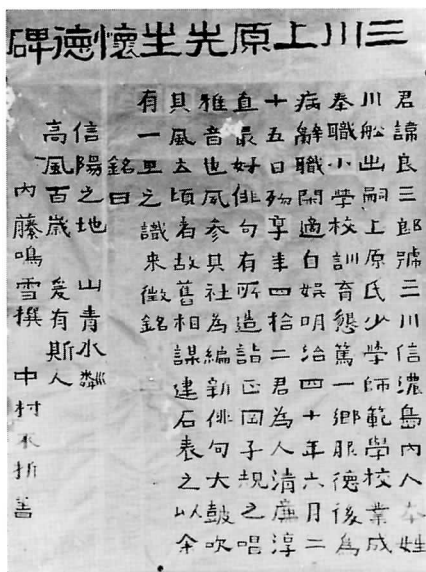 三川上原先生懷德碑
君諱良三郎號三川信濃島內人本姓
川船出嗣上原氏少學師範學校業成
奉職小學校訓育懇篤一鄉服德後為
病辭職閑適自娯明治四十年六月二
十五日歿享年四拾二君為人清廉淳
直最好俳句有所造詣正岡子規之唱
雅音也夙参其社為編新俳句大鼓吹
其風太頃者故舊相謀建石表之以余
有一面之識来徴銘
銘曰
信陽之地 山青水粼
高風百歲 爰有斯人
內藤鳴雪撰 中村不折書